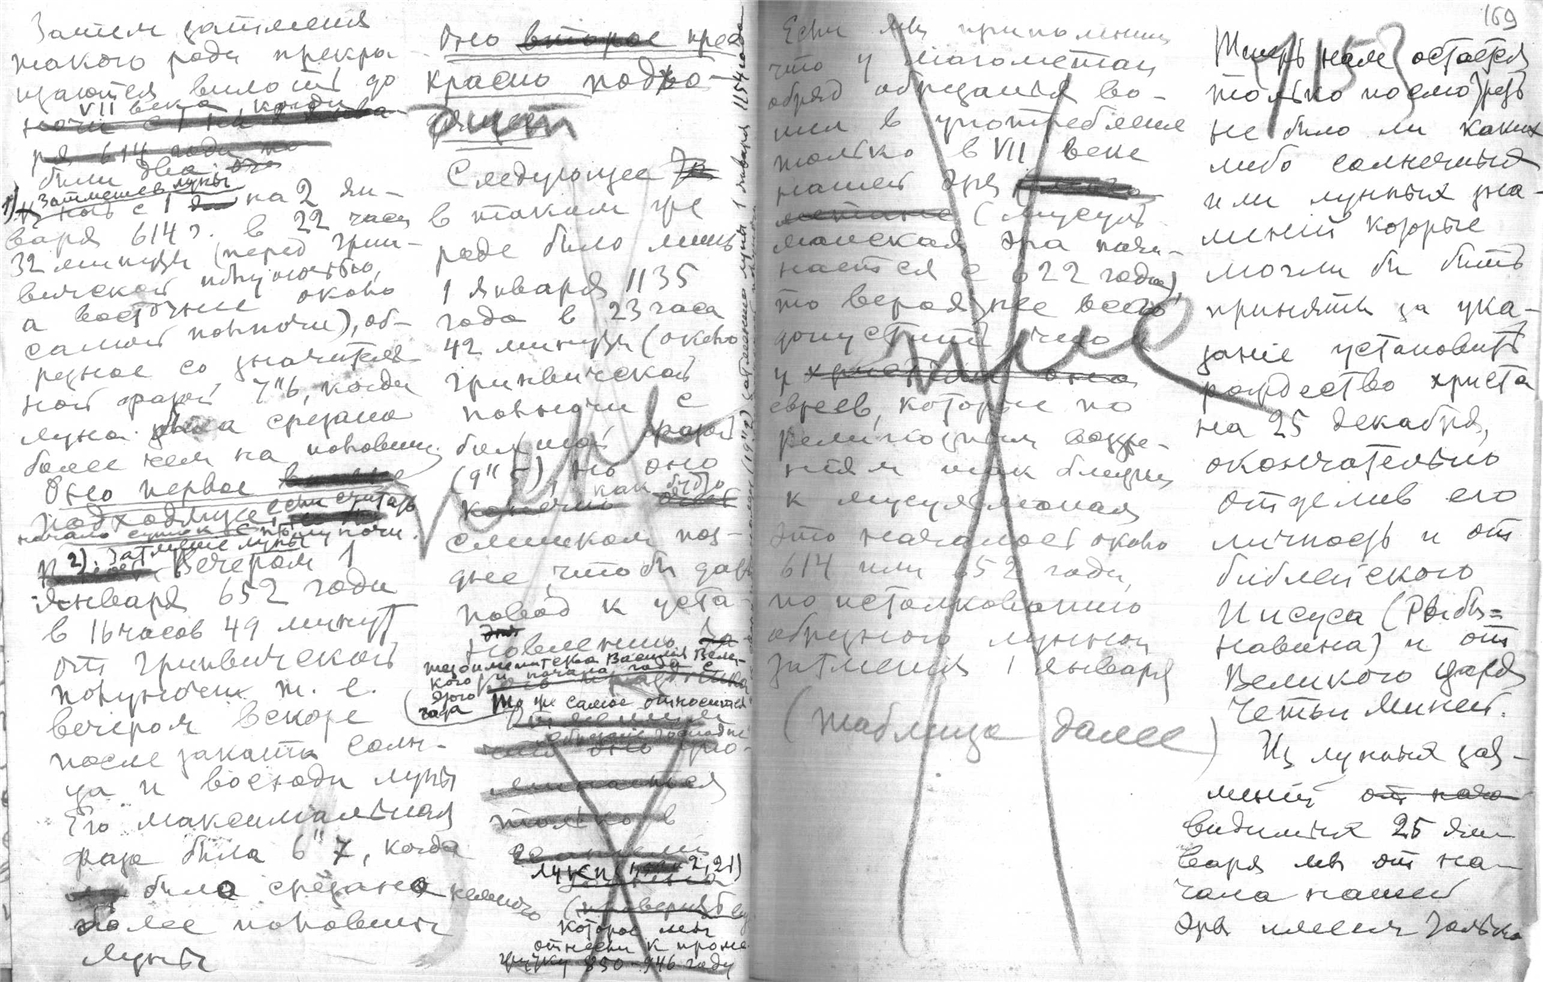 Затем затмения
такого рода прекра
щаются вплоть до
VII века, когда
ночи с 1 на 2 янва-
ря 614 года
были два
1) Затмение луны
ночь с 1 на 2 ян-
варя 614 г. в 22 часа
32 минуты (перед грин-
вичской полуночью,
а восточнее около
самой полночи), об-
резное со значитель
ной фазой 7"6, когда
луна была срезана
более чем на половину.
Оно первое
подходящее если считать
начало суток с полуночи.
2). Затмение луны
вечером 1
января 652 года
в 16 часов 49 минут
от гринвической
полуночи т. е.
вечером вскоре
после заката солн-
ца и восхода луны
Его максимальная
фаза была 6"7, когда
была срезана немного
более половины
луны
Оно второе прек
красно подхо-
дит
Следующее
в таком же
роде было лишь
1 января 1135
года в 23 часа
42 минуты (около
гринвической
полночи с
большой фазой
(9"5) но оно
конечно как будто
слишком поз-
дне, чтобы дать
повод к уста-
новлению
дня
тезоименитства Василия Вели-
кого и начала года с
этого
То же самое относится
Обрезание господне
только в
Луки 2,21)
(проверить
которое мы
отнесли к проме
жутку 850-946 году
(19"2) затмение луны 1 января 1154 года
Если мы припомним
что у магометан
обряд обрезания во-
шел в употребление
только в VII веке
нашей эры
(мусуль
манская эра начи-
нается с 622 года),
то вероятнее всего
допустить, что
и у христиан оно
евреев, которые по
религиозным воззре-
ниям так близки
к мусульманам
это началось около
614 или 652 года,
по истолкованию
обрезного лунного
затмения 1 января
(таблица далее)
169
1153
Теперь нам остается
только посмотреть
не было ли каких
либо солнечных
или лунных зна-
мений которые
могли бы быть
приняты за ука-
зание установить
рождество христа
на 25 декабря,
окончательно
отделив его
личность и от
библейского
Иисуса (Рыбы-
Навина) и от
Великого царя
Четьи Миней.
Из лунных зат-
мений от нача
видимых 25 ян-
варя мы от на-
чала нашей
эры имеем только